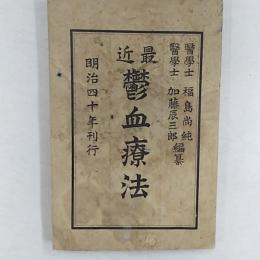 醫學士 福島尚純
醫學士 加藤辰三郎 編纂
最近
鬱血療法
明治四十年刊行